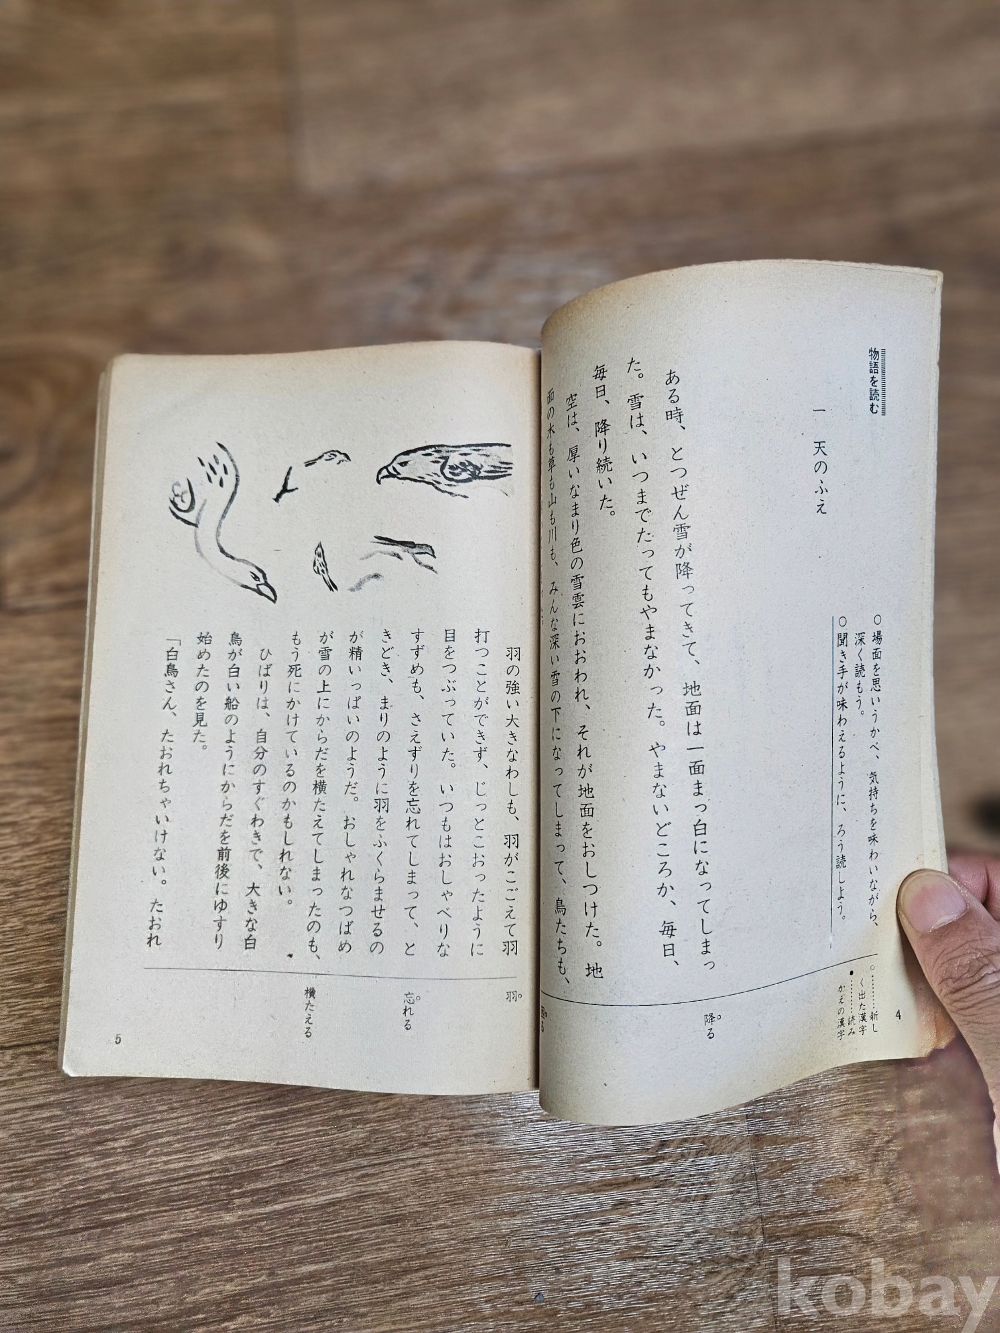 物語を読む
一 天のふえ
○場面を思いうかべ、気持ちを味わいながら、
深く読もう。
○聞き手が味わえるように、ろう読しよう。
ある時、とつぜん雪が降ってきて、地面は一面まっ白になってしまっ
た。雪は、いつまでたってもやまなかった。やまないどころか、毎日、
毎日、降り続いた。
空は、厚いなまり色の雪雲におおわれ、それが地面をおしつけた。地
面の木も草も山も川も、みんな深い雪の下になってしまって、鳥たちも、
○………新し
く出た漢字
●………読み
かえの漢字
降る
4
羽の強い大きなわしも、羽がこごえて羽
打つことができず、じっとこおったように
目をつぶっていた。いつもはおしゃべりな
すずめも、さえずりを忘れてしまって、と
きどき、まりのように羽をふくらませるの
が精いっぱいのようだ。おしゃれなつばめ
が雪の上にからだを横たえてしまったのも、
もう死にかけているのかもしれない。
ひばりは、自分のすぐわきで、大きな白
鳥が白い船のようにからだを前後にゆすり
始めたのを見た。
「白鳥さん、たおれちゃいけない。たおれ
羽
忘れる
横たえる
5
kobay